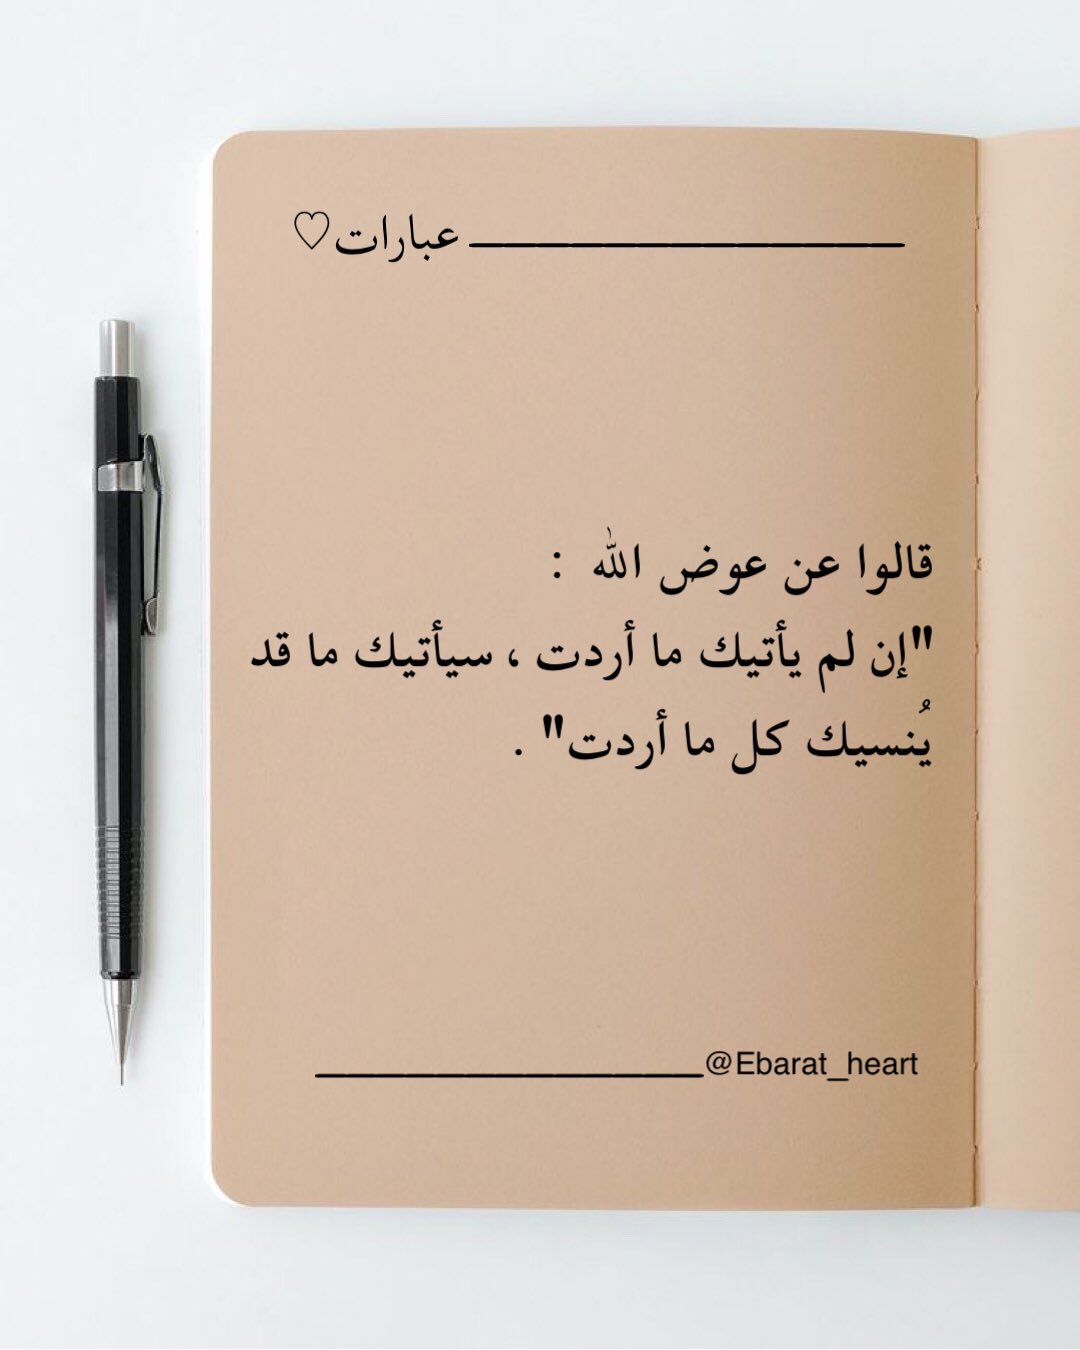 عبارات♡
قالوا عن عوض الله :
"إن لم يأتيك ما أردت ، سيأتيك ما قد
يُنسيك كل ما أردت" .
@Ebarat_heart